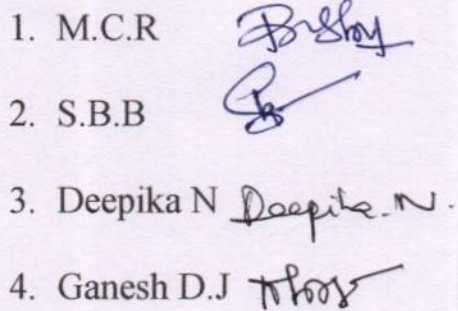 1. M.C.R
2. S.B.B
3. Deepika N Deepika. N.
4. Ganesh D.J